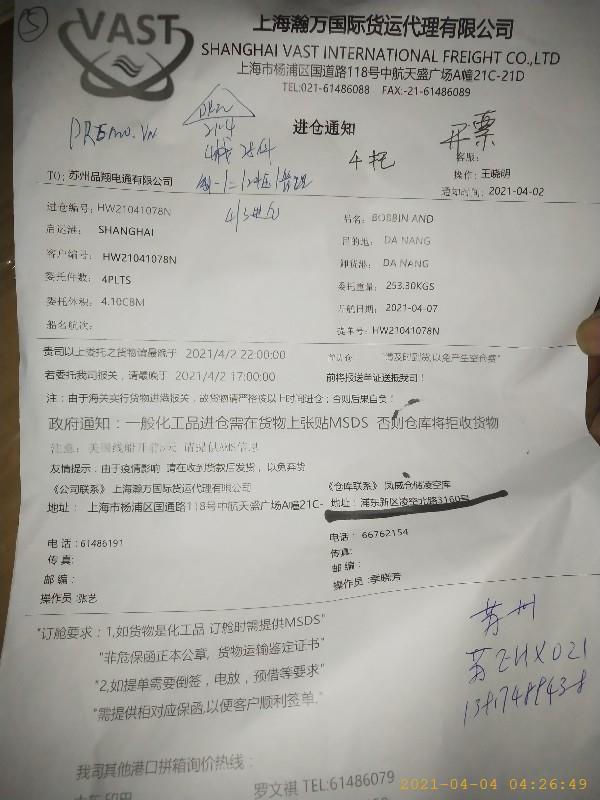 5
VAST
上海瀚万国际货运代理有限公司
SHANGHAI VAST INTERNATIONAL FREIGHT CO.,LTD
上海市杨浦区国道路118号中航天盛广场A幢21C-21D
TEL:021-61486088 FAX:-21-61486089
进仓通知
开票
4托
TO: 苏州品翔电通有限公司
客服:
操作: 王晓明
通知时间: 2021-04-02
进仓编号: HW21041078N
品名: BOBBIN AND
启运港: SHANGHAI
目的地: DA NANG
客户编号: HW21041078N
卸货港: DA NANG
委托件数: 4PLTS
委托重量: 253.30KGS
委托体积: 4.10CBM
开航日期: 2021-04-07
船名航次:
提单号: HW21041078N
贵司以上委托之货物请最晚于 2021/4/2 22:00:00
请及时到货,以免产生空仓费
若委托我司报关, 请最晚于 2021/4/2 17:00:00
前将报送单证送报我司!
注: 由于海关实行货物进港报关, 故货物请严格按以上时间进仓; 否则后果自负!
政府通知: 一般化工品进仓需在货物上张贴MSDS 否则仓库将拒收货物
友情提示: 由于疫情影响 请在收到放款后发货, 以免弃货
《公司联系》 上海瀚万国际货运代理有限公司
《仓库联系》 凤威仓储凌空库
地址: 上海市杨浦区国通路118号中航天盛广场A幢21C-
地址: 浦东新区凌空北路3160号
电话: 61486191
电话: 66762154
传真:
传真:
邮编:
邮编:
操作员: 张艺
操作员: 李晓芳
"订舱要求: 1,如货物是化工品 订舱时需提供MSDS"
"非危保函正本公章, 货物运输鉴定证书"
"2,如提单需要倒签, 电放, 预借等要求"
"需提供相对应保函,以便客户顺利签单."
苏州
我司其他港口拼箱询价热线:
罗文祺 TEL:61486079
2021-04-04 04:26:49